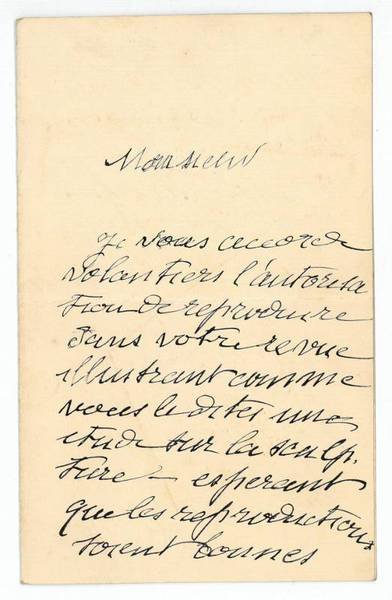 Monsieur
Je vous accorde
volontiers l'autorisa
tion de reproduire
dans votre revue
illustrant comme
vous le dites une
etude sur la sculp.
ture — esperant
que les reproductions
soient bonnes